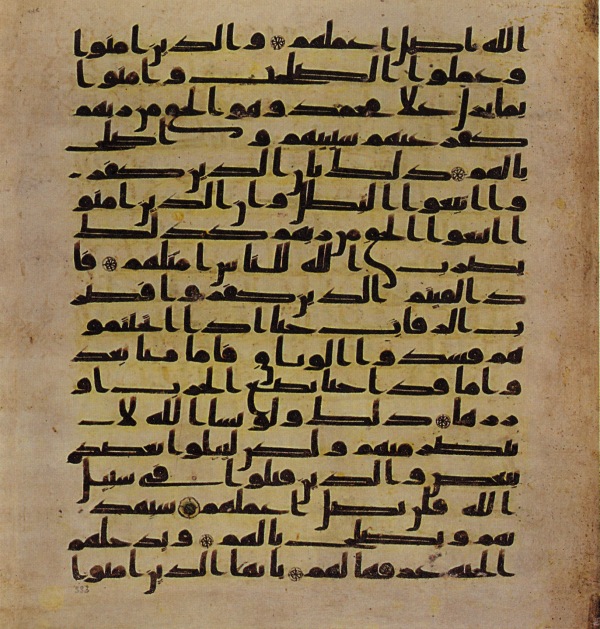 الله اضل اعملهم والذين امنوا
وعملوا الصلحت وامنوا
بما نزل علا محمد وهو الحق من ربهم
كفر عنهم سيتهم واصلح
بالهم ذلك بان الذين كفر
وا اتبعوا البطل وان الذين امنو
ا اتبعوا الحق من ربهم كذلك
يضرب الله للناس امثلهم فا
ذا لقيتم الذين كفروا فضر
ب الرقاب حتا اذا اثخنتمو
هم فشدوا الوثاق فاما منا بعد
واما فدا حتا تضع الحرب او
زرها ذلك ولو يشا الله لا
نتصر منهم ولكن ليبلوا بعضكم
ببعض والذين قتلوا في سبيل
الله فلن يضل اعملهم سيهد
يهم ويصلح بالهم ويدخلهم
الجنه عرفها لهم يايها الذين امنوا
333